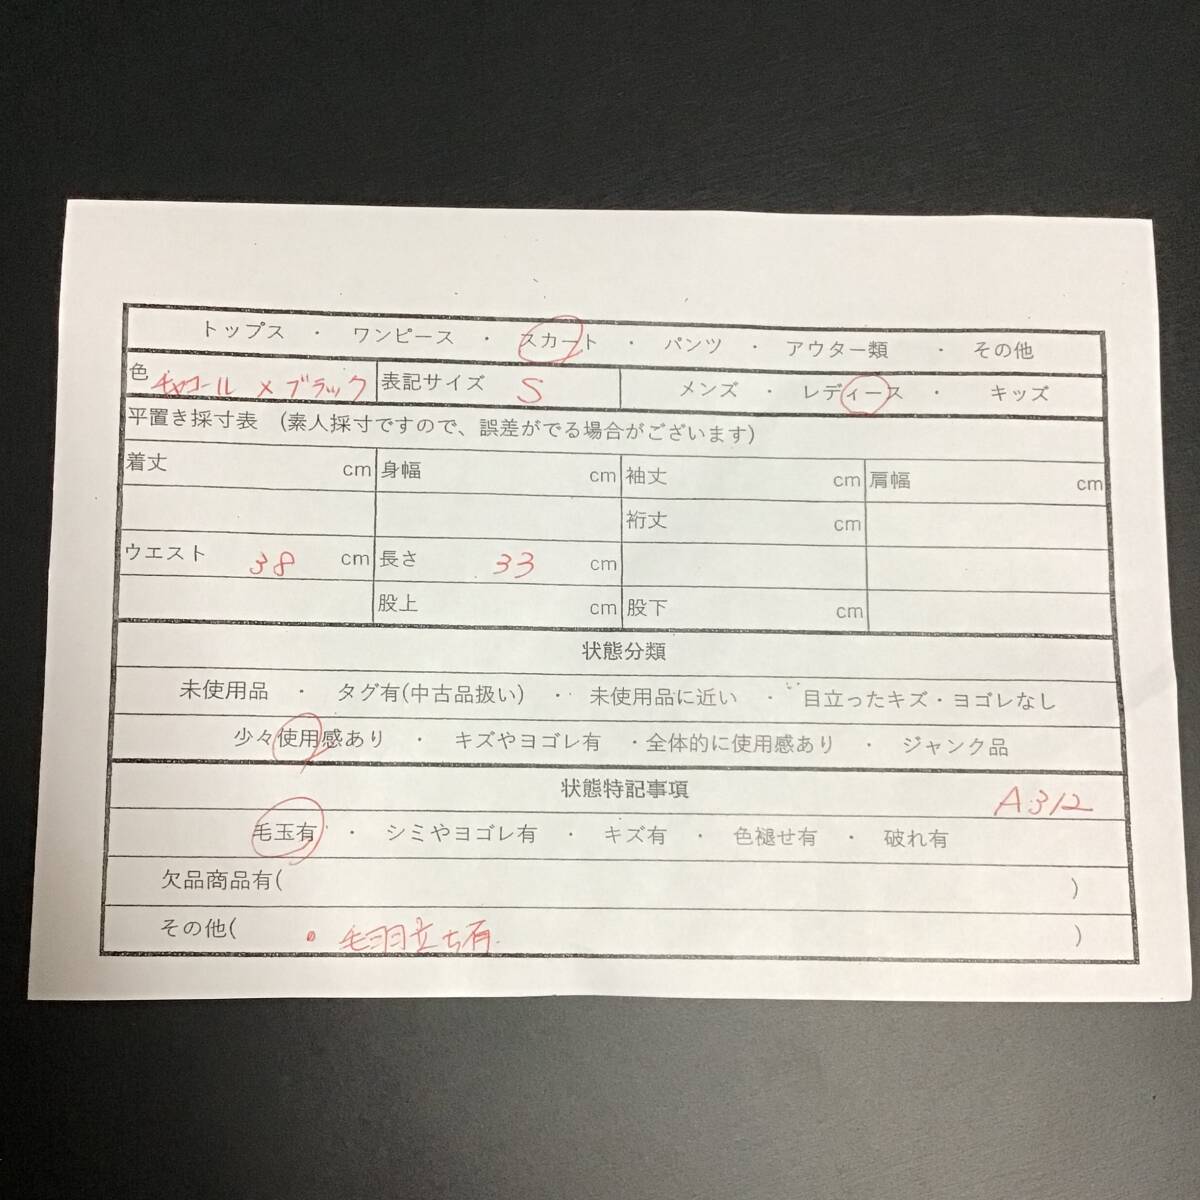 トップス ・ ワンピース ・ スカート ・ パンツ ・ アウター類 ・ その他
色 チャコール × ブラック 表記サイズ S メンズ ・ レディース ・ キッズ
平置き採寸表 (素人採寸ですので、誤差がでる場合がございます)
着丈 cm 身幅 cm 袖丈 cm 肩幅 cm
裄丈 cm
ウエスト 38 cm 長さ 33 cm
股上 cm 股下 cm
状態分類
未使用品 ・ タグ有(中古品扱い) ・ 未使用品に近い ・ 目立ったキズ・ヨゴレなし
少々使用感あり ・ キズやヨゴレ有 ・全体的に使用感あり ・ ジャンク品
状態特記事項 A312
毛玉有 ・ シミやヨゴレ有 ・ キズ有 ・ 色褪せ有 ・ 破れ有
欠品商品有( )
その他( ・毛羽立ち有 )